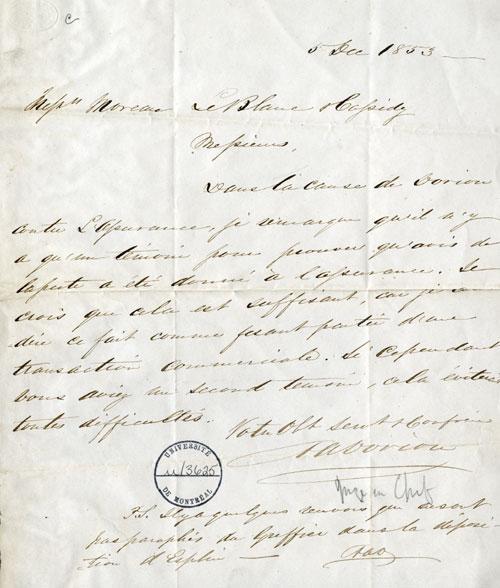 c
5 Dec 1853
Messrs Moreau LeBlanc & Cassidy
Messieurs,
Dans la cause de Dorion
contre L'Assurance, je remarque qu'il n'y
a qu'un témoin pour prouver qu'avis de
la perte a été donné à l'assurance. Je
crois que cela est suffisant, car je
dire ce fait comme fesant partie d'une
transaction commerciale. Si Cependant
vous aviez un second temoin, cela éviterait
toutes difficultés.
Votre Obt Servt & Confrère
V A A Dorion
UNIVERSITÉ
u/3625
DE MONTRÉAL
Juge en Chef
P.S. Il y a quelques renvois qui ne sont
pas paraphés du Greffier dans la deposi
tion d'Esplin
AAD